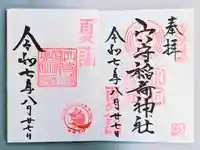 奉拝
穴守稲荷神社
令和七年八月廿七日
夏詣
令和七年八月廿七日